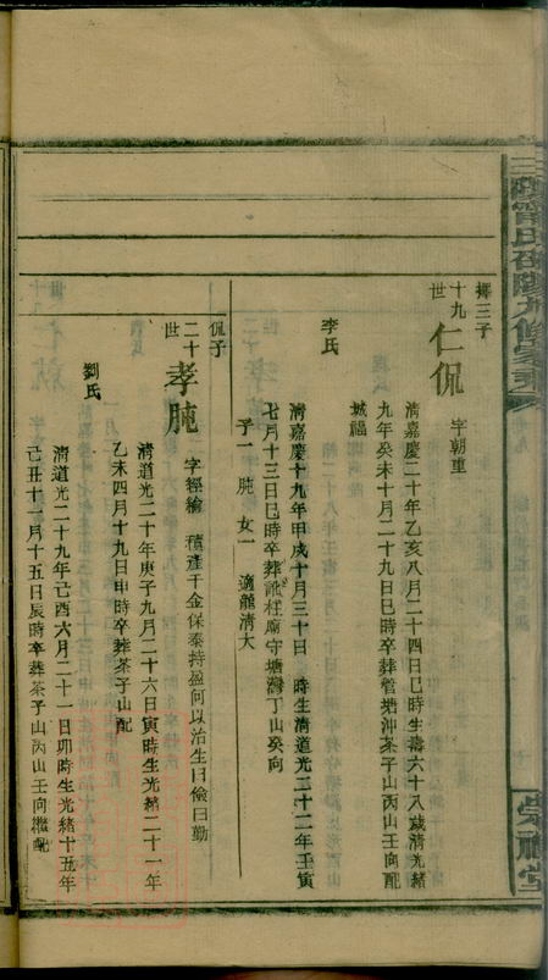 甯氏邵陽九修家乘
崇福堂
十九世
三子
仁侃 字朝重
清嘉慶二十年乙亥八月二十四日巳時生壽六十八歲清光緒
九年癸未十月二十九日巳時卒葬管塘沖茶子山丙山壬向配
城福
李氏
清嘉慶十九年甲戌十月三十日 時生清道光二十二年壬寅
七月十三日巳時卒葬訛枉廟守塘灣丁山癸向
子一 肫 女一 適龍清大
侃子
二十世
孝肫 字經綸 積產千金保泰持盈何以治生曰儉曰勤
清道光二十年庚子九月二十六日寅時生光緒二十一年
乙未四月十九日申時卒葬茶子山配
劉氏
清道光二十九年己酉六月二十一日卯時生光緒十五年
己丑十一月十五日辰時卒葬茶子山丙山壬向繼配